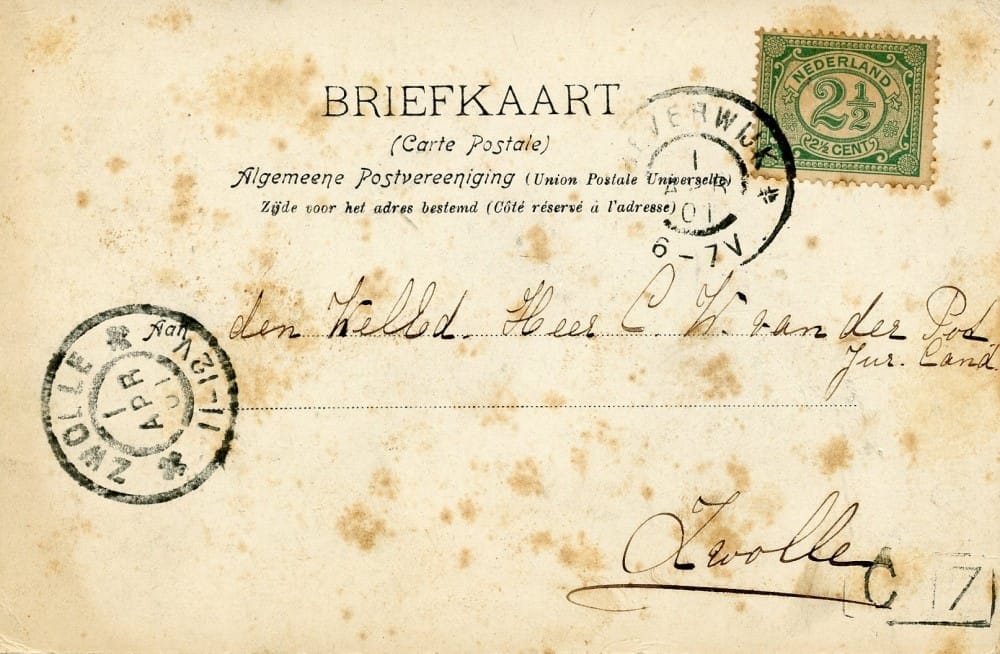 BRIEFKAART
(Carte Postale)
Algemeene Postvereeniging (Union Postale Universelle)
Zijde voor het adres bestemd (Côté réservé à l'adresse)
NEDERLAND
2½
2½ CENT
BEVERWIJK
1
APR
01
6-7V
Aan den WelEd. Heer C W. van der Pod
Jur. Cand.
ZWOLLE
1
APR
01
11-12V
Zwolle
C 7